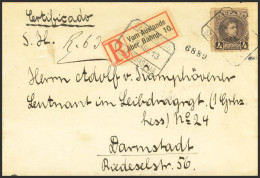 Certificado
S. H.
R
Vom Auslande
über Bahnh. 10.
6889
4
Herrn Adolf v. Kamphövener
Leutnant im Leibdragrgt. (1 Grhz.
hess) No 24
Darmstadt
Riedeselstr. 56.